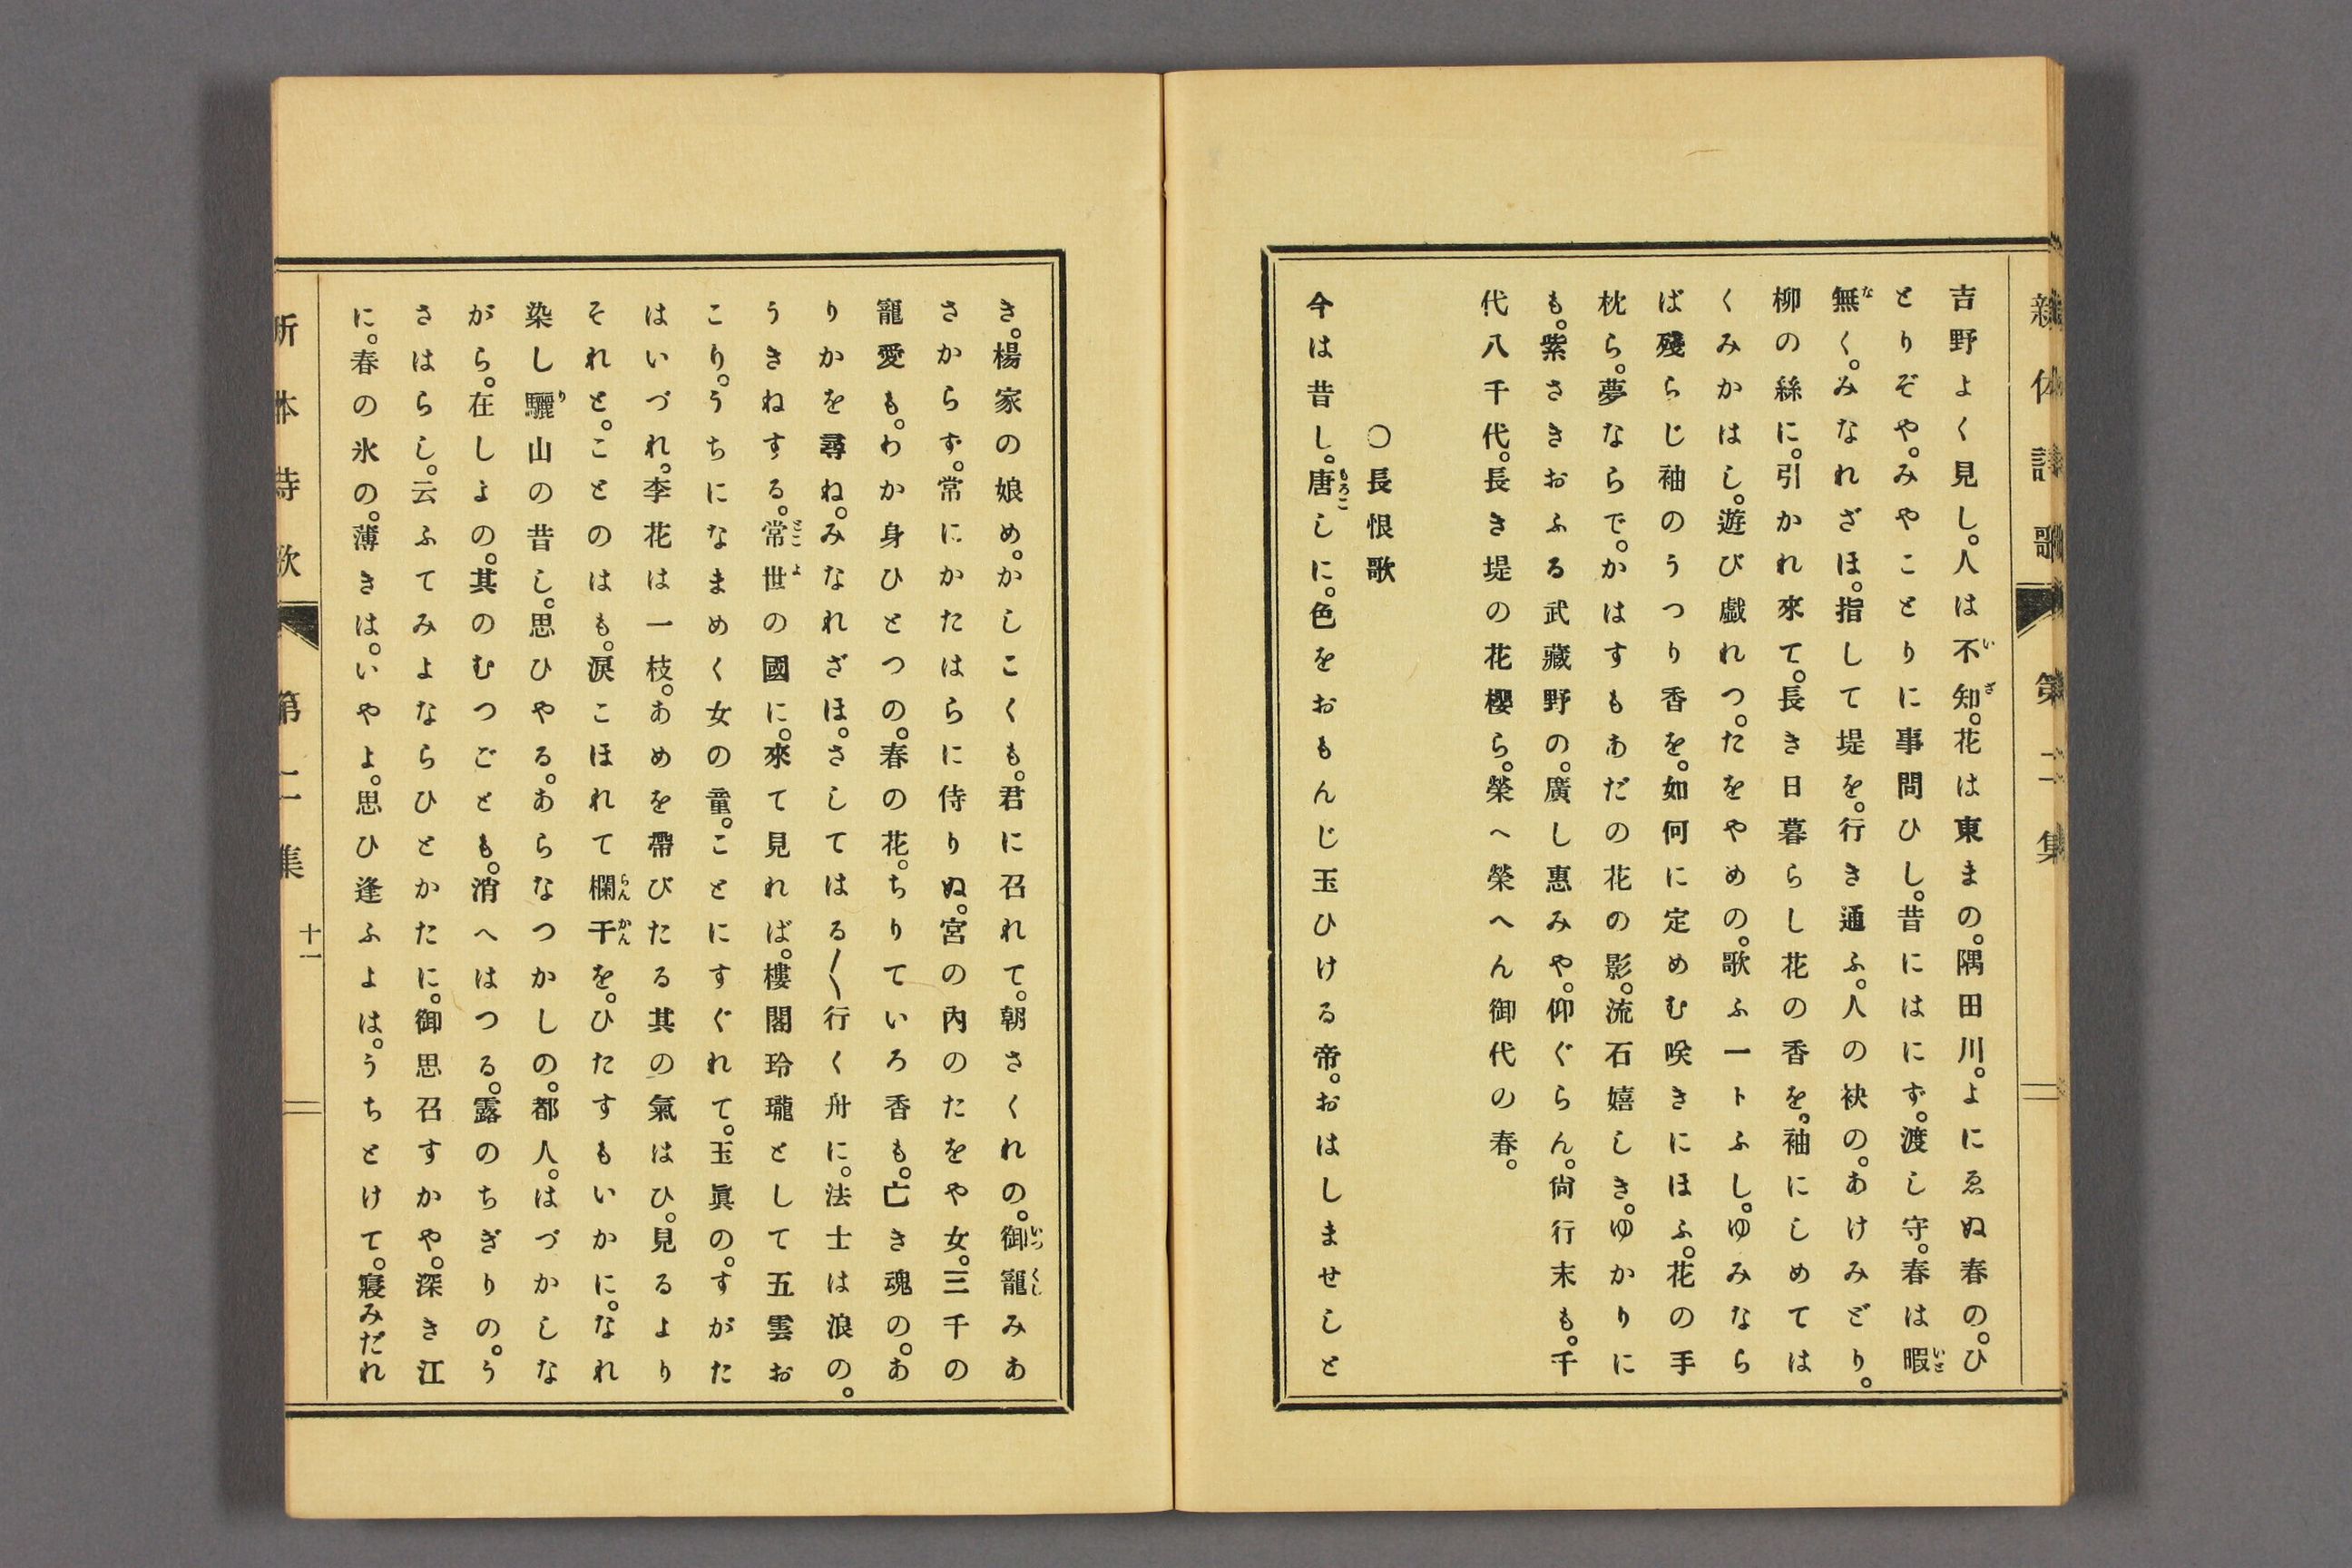 新体詩歌 第二集
吉野よく見し。人は不知。花は東まの。隅田川。よにゑぬ春の。ひ
とりぞや。みやことりに事問ひし。昔にはにず。渡し守。春は暇
無く。みなれざほ。指して堤を。行き通ふ。人の袂の。あけみどり。
柳の絲に。引かれ來て。長き日暮らし花の香を。袖にしめては
くみかはし。遊び戯れつ。たをやめの。歌ふ一トふし。ゆみなら
ば殘らじ袖のうつり香を。如何に定めむ咲きにほふ。花の手
枕ら。夢ならで。かはすもあだの花の影。流石嬉しき。ゆかりに
も。紫さきおふる武藏野の。廣し惠みや。仰ぐらん。尙行末も。千
代八千代。長き堤の花櫻ら。榮へ榮へん御代の春。
〇長恨歌
今は昔し。唐しに。色をおもんじ玉ひける帝。おはしませしと
き。楊家の娘め。かしこくも。君に召れて。朝さくれの。御寵みあ
さからず。常にかたはらに侍りぬ。宮の內のたをや女。三千の
寵愛も。わか身ひとつの。春の花。ちりていろ香も。亡き魂の。あ
りかを尋ね。みなれざほ。さしてはる〱行く舟に。法士は浪の。
うきねする。常世の國に。來て見れば。樓閣玲瓏として五雲お
こり。うちになまめく女の童。ことにすぐれて。玉眞の。すがた
はいづれ。李花は一枝。あめを帶びたる其の氣はひ。見るより
それと。ことのはも。淚こほれて欄干を。ひたすもいかに。なれ
染し驪山の昔し。思ひやる。あらなつかしの。都人。はづかしな
がら。在しよの。其のむつごとも。消へはつる。露のちぎりの。う
さはらし。云ふてみよならひとかたに。御思召すかや。深き江
に。春の氷の。薄きは。いやよ。思ひ逢ふよは。うちとけて。寢みだれ
新体詩歌 第二集 十一